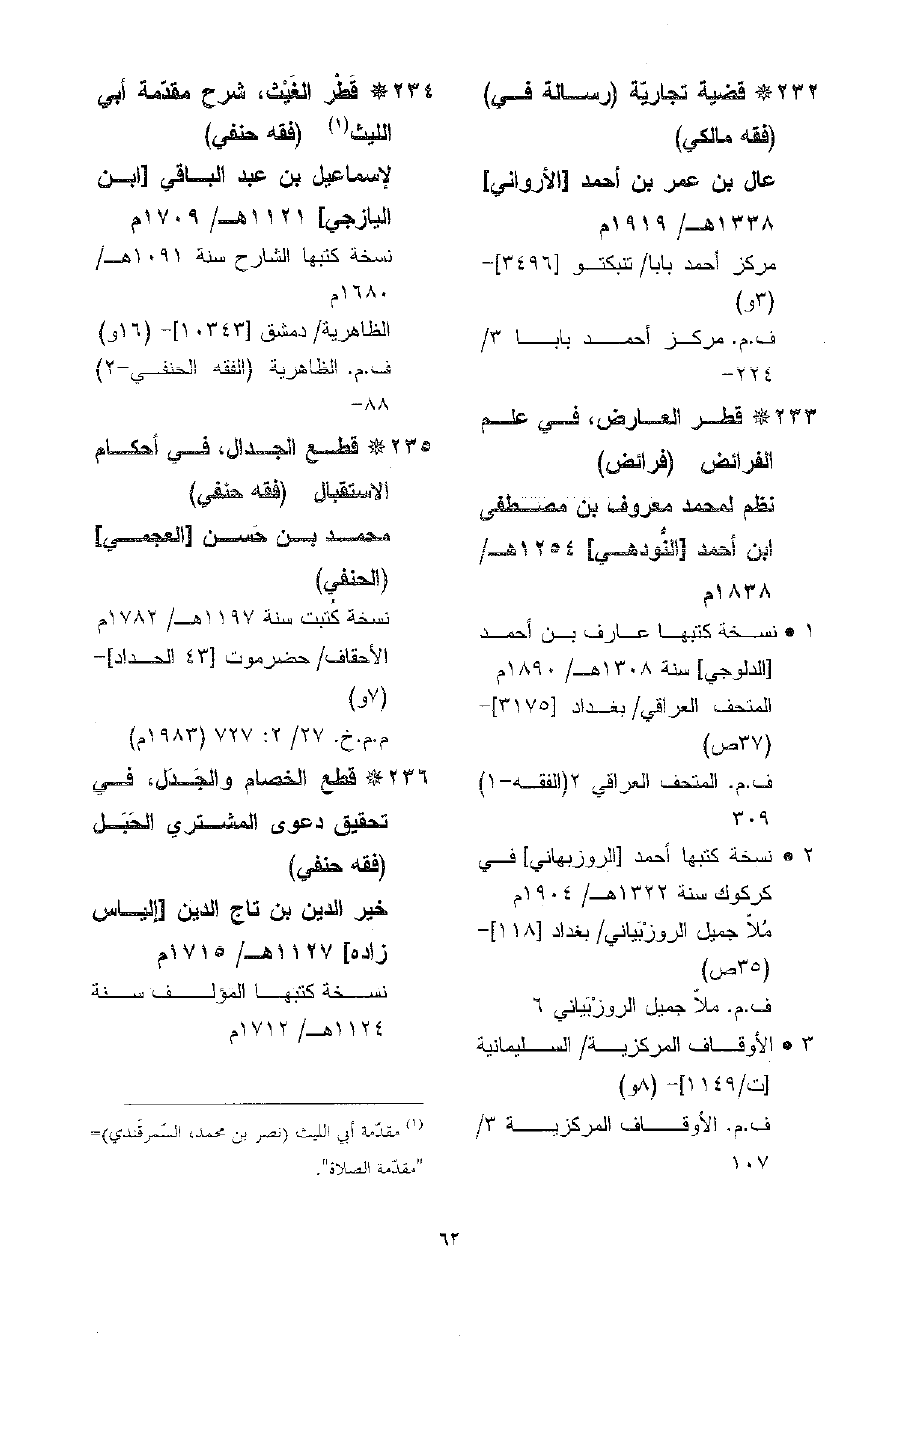 ٢٣٢ * قضية تجاريّة (رسالة في)
(فقه مالكي)
عال بن عمر بن أحمد [الأرواني]
١٣٣٨هـ/ ١٩١٩م
مركز أحمد بابا/ تنبكتو [٣٤٩٦]-
(٣و)
ف.م. مركز أحمد بابا ٣/
٢٢٤-
٢٣٣ * قطر العارض، في علم
الفرائض (فرائض)
نظم لمحمد معروف بن مصطفى
ابن أحمد [النُّودهي] ١٢٥٤هـ/
١٨٣٨م
١ • نسخة كتبها عارف بن أحمد
[الدلوجي] سنة ١٣٠٨هـ/ ١٨٩٠م
المتحف العراقي/ بغداد [٣١٧٥]-
(٣٧ص)
ف.م. المتحف العراقي ٢(الفقه-١)
٣٠٩
٢ • نسخة كتبها أحمد [الروزبهاني] في
كركوك سنة ١٣٢٢هـ/ ١٩٠٤م
مُلاّ جميل الروزْبَياني/ بغداد [١١٨]-
(٣٥ص)
ف.م. ملاّ جميل الروزْبَياني ٦
٣ • الأوقاف المركزية/ السليمانية
[ت/١١٤٩]- (٨و)
ف.م. الأوقاف المركزية ٣/
١٠٧
٢٣٤ * قَطْر الغَيْث، شرح مقدّمة أبي
الليث(١) (فقه حنفي)
لإسماعيل بن عبد الباقي [ابن
اليازجي] ١١٢١هـ/ ١٧٠٩م
نسخة كتبها الشارح سنة ١٠٩١هـ/
١٦٨٠م
الظاهرية/ دمشق [١٠٣٤٣]- (١٦و)
ف.م. الظاهرية (الفقه الحنفي-٢)
٨٨-
٢٣٥ * قطع الجدال، في أحكام
الاستقبال (فقه حنفي)
محمد بن حَسن [العجمي]
(الحنفي)
نسخة كُتبت سنة ١١٩٧هـ/ ١٧٨٢م
الأحقاف/ حضرموت [٤٣ الحداد]-
(٧و)
م.م.خ. ٢٧/ ٢: ٧٢٧ (١٩٨٣م)
٢٣٦ * قطع الخصام والجَدَل، في
تحقيق دعوى المشتري الحَبَل
(فقه حنفي)
خير الدين بن تاج الدين [إلياس
زاده] ١١٢٧هـ/ ١٧١٥م
نسخة كتبها المؤلف سنة
١١٢٤هـ/ ١٧١٢م
(١) مقدّمة أبي الليث (نصر بن محمد، السَّمرقَندي)=
"مقدّمة الصلاة".
٦٢